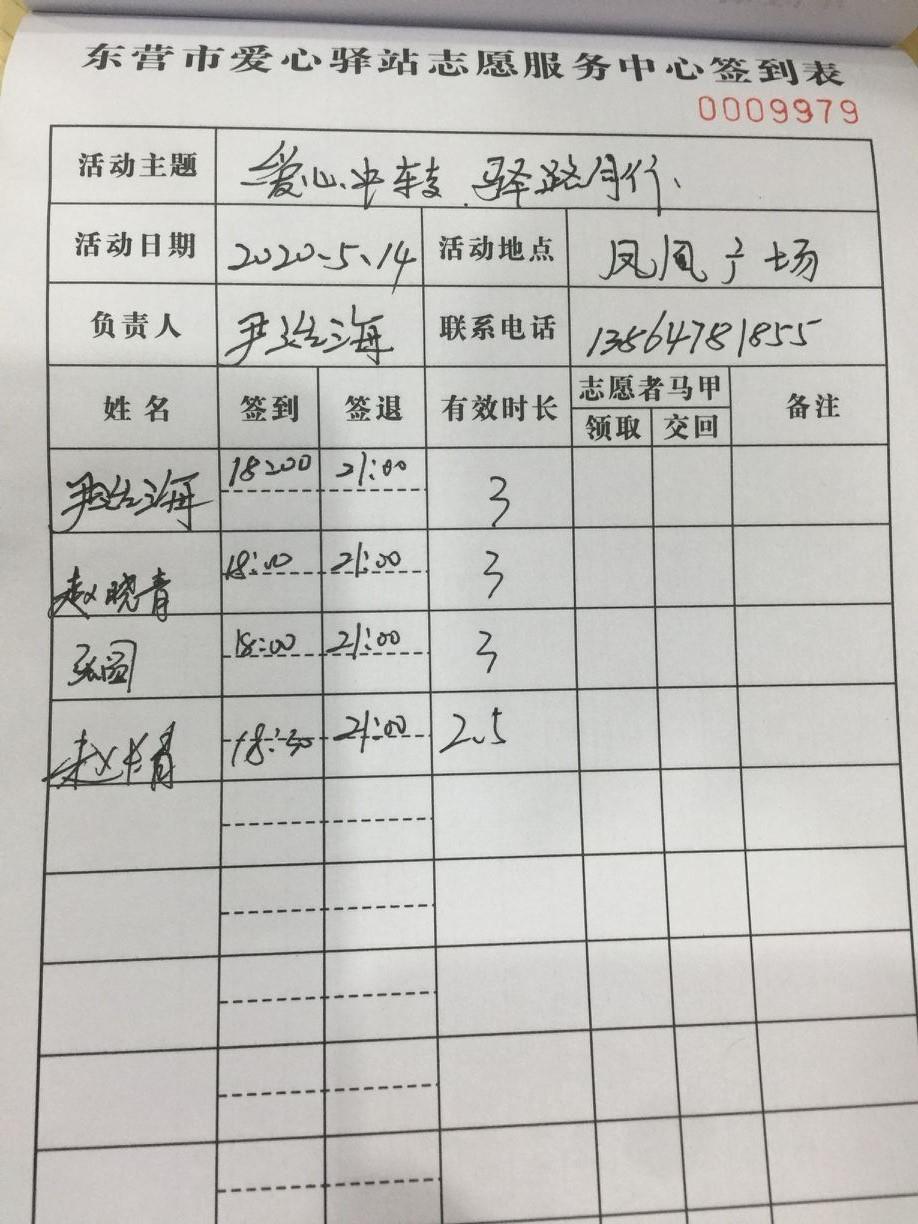 东营市爱心驿站志愿服务中心签到表
0009979
活动主题 爱心中转 驿路同行、
活动日期 2020-5.14 活动地点 凤凰广场
负责人 尹治海 联系电话 13864781855
姓名 签到 签退 有效时长 志愿者马甲 备注
领取 交回
尹治海 18:00 21:00 3
赵晓青 18:00 21:00 3
18:00 21:00 3
18:30 21:00 2.5